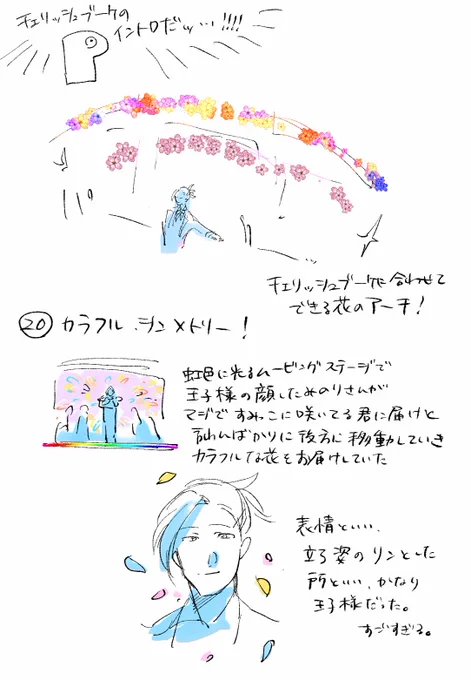 チェリッシュブーケの
イントロだッ…!!!!
P
チェリッシュブーケに合わせて
できる花のアーチ!
⑳ カラフルシンメトリー!
虹色に光るムービングステージで
王子様の顔したみのりさんが
マジですみっこに咲いてる君に届けと
言わんばかりに後方に移動していき
カラフルな花をお届けしていた
表情といい、
立ち姿のリンとした
所といい、かなり
王子様だった。
すごすぎる。